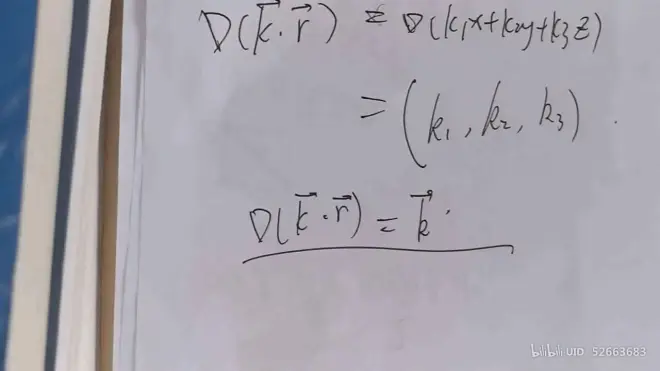 ∇(k⃗·r⃗) = ∇(k₁x+k₂y+k₃z)
= (k₁, k₂, k₃).
∇(k⃗·r⃗) = k⃗.
bilibili UID 52663683